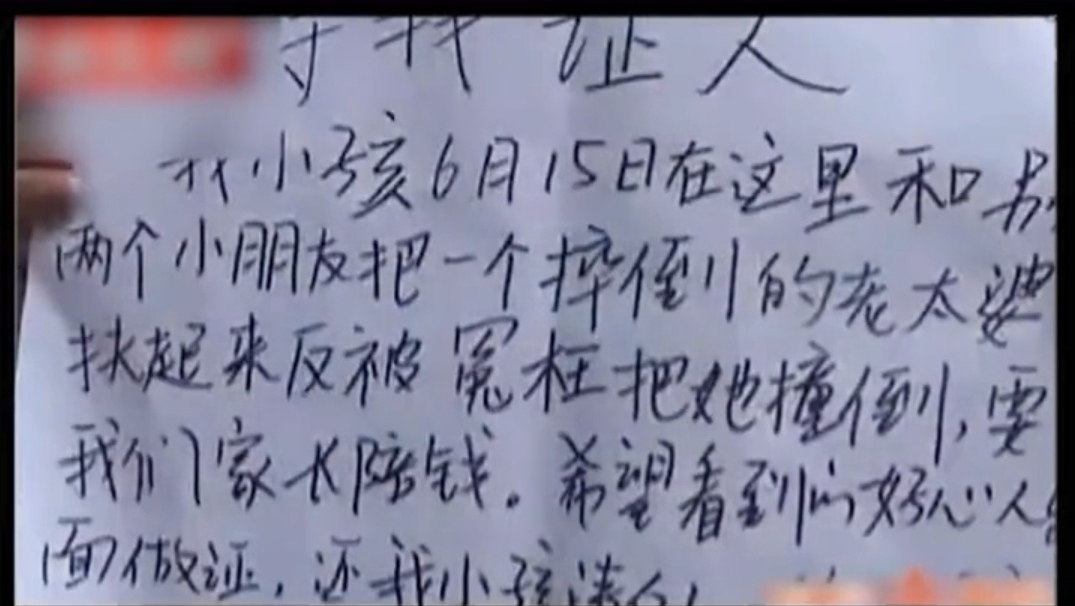 寻找证人
我小孩6月15日在这里和别
两个小朋友把一个摔倒的老太婆
扶起来反被冤枉把她撞倒,要
我们家长陪钱。希望看到的好心人
面做证,还我小孩